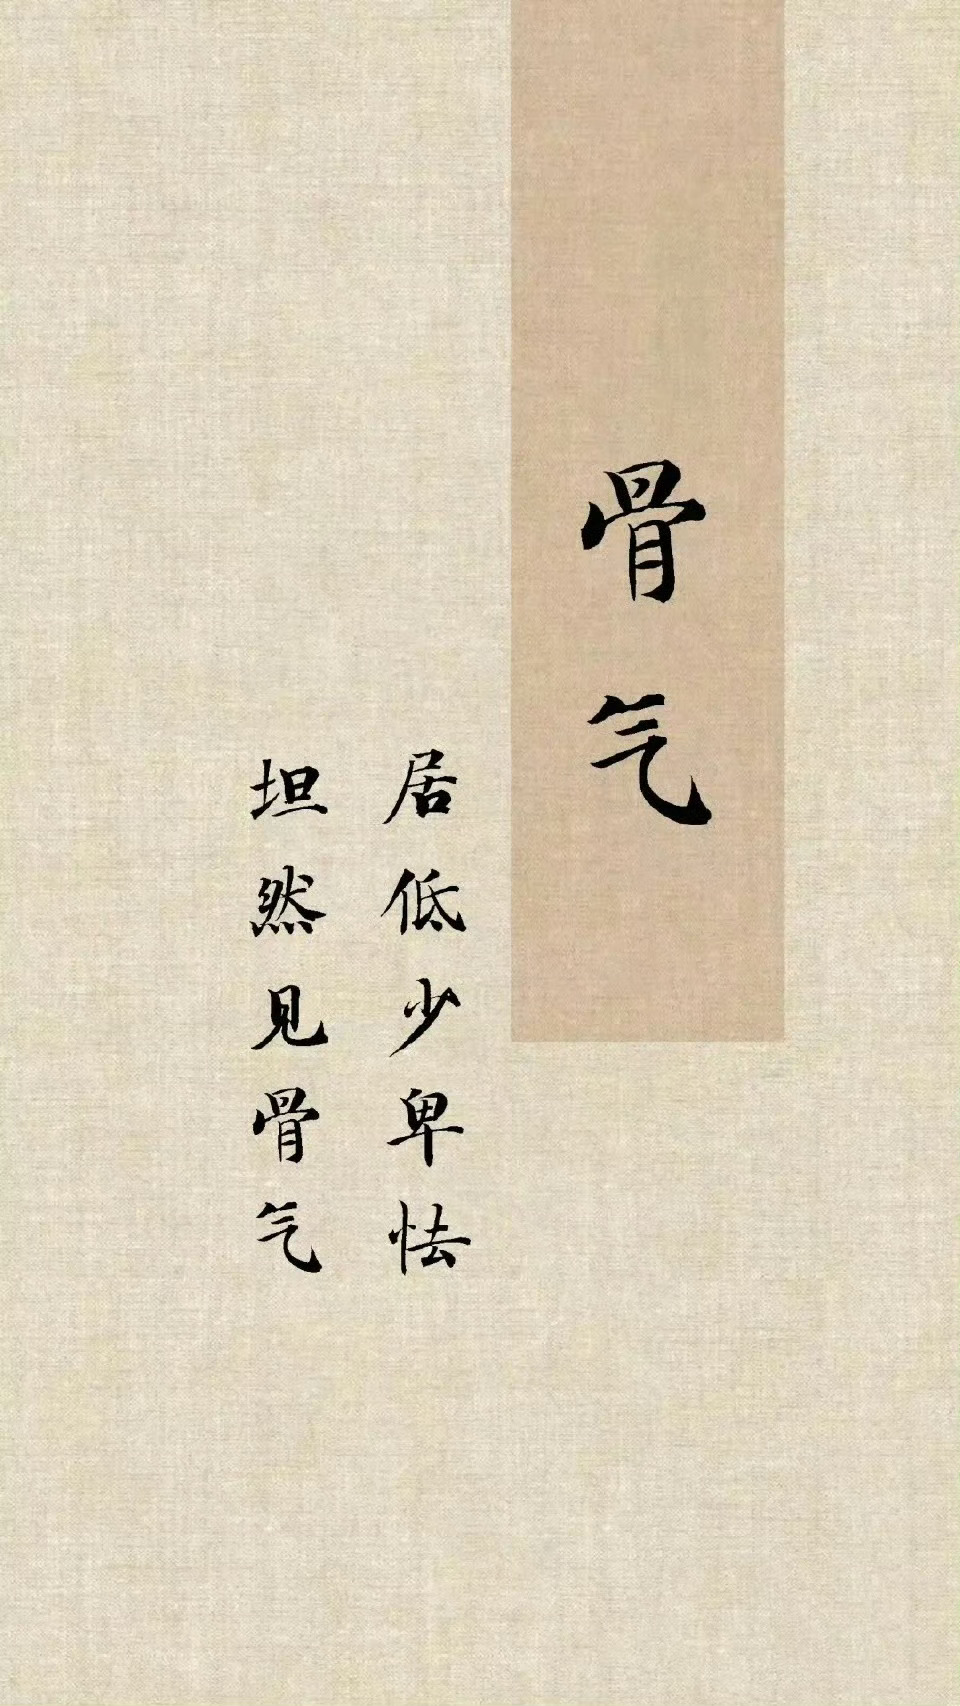 骨气
居低少卑怯
坦然见骨气